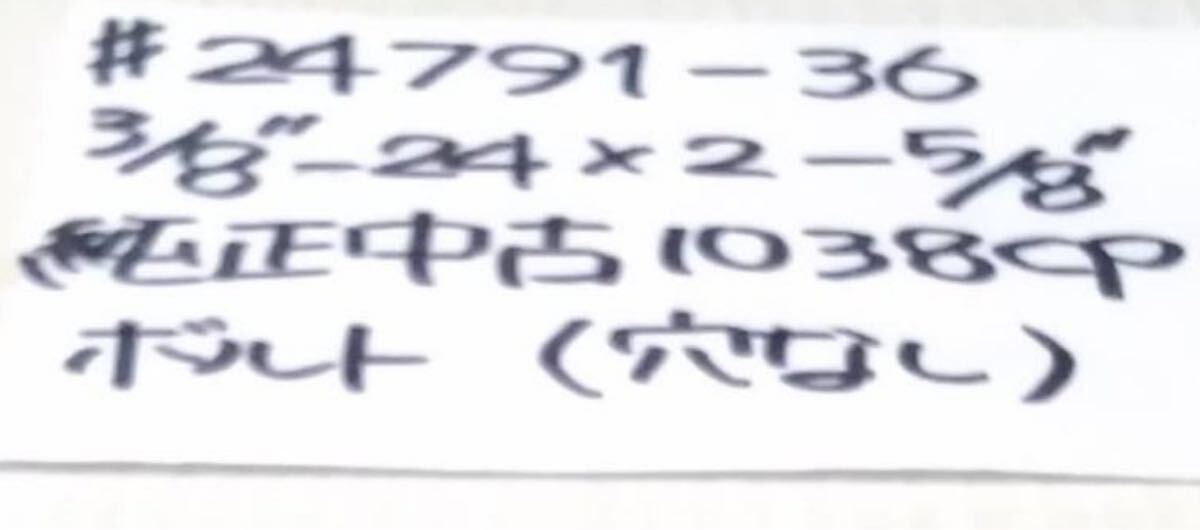 #24791-36
3/8"-24×2-5/8"
純正中古1038CP
ボルト (穴なし)